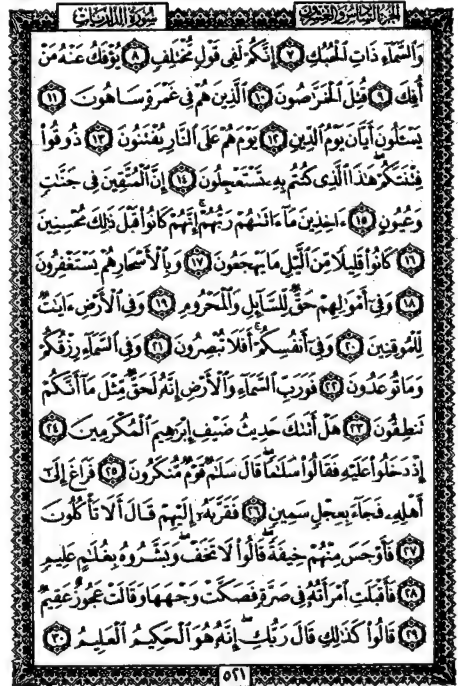 الجزء السادس والعشرون سورة الذاريات
وَالسَّمَآءِ ذَاتِ الْحُبُكِ ٧ إِنَّكُمْ لَفِى قَوْلٍ مُّخْتَلِفٍ ٨ يُؤْفَكُ عَنْهُ مَنْ
أُفِكَ ٩ قُتِلَ الْخَرَّٰصُونَ ١٠ الَّذِينَ هُمْ فِى غَمْرَةٍ سَاهُونَ ١١
يَسْـَٔلُونَ أَيَّانَ يَوْمُ الدِّينِ ١٢ يَوْمَ هُمْ عَلَى النَّارِ يُفْتَنُونَ ١٣ ذُوقُوا۟
فِتْنَتَكُمْ هَٰذَا الَّذِى كُنتُم بِهِۦ تَسْتَعْجِلُونَ ١٤ إِنَّ الْمُتَّقِينَ فِى جَنَّٰتٍ
وَعُيُونٍ ١٥ ءَاخِذِينَ مَآ ءَاتَىٰهُمْ رَبُّهُمْ ۚ إِنَّهُمْ كَانُوا۟ قَبْلَ ذَٰلِكَ مُحْسِنِينَ
١٦ كَانُوا۟ قَلِيلًا مِّنَ الَّيْلِ مَا يَهْجَعُونَ ١٧ وَبِالْأَسْحَارِ هُمْ يَسْتَغْفِرُونَ
١٨ وَفِىٓ أَمْوَٰلِهِمْ حَقٌّ لِّلسَّآئِلِ وَالْمَحْرُومِ ١٩ وَفِى الْأَرْضِ ءَايَٰتٌ
لِّلْمُوقِنِينَ ٢٠ وَفِىٓ أَنفُسِكُمْ ۚ أَفَلَا تُبْصِرُونَ ٢١ وَفِى السَّمَآءِ رِزْقُكُمْ
وَمَا تُوعَدُونَ ٢٢ فَوَرَبِّ السَّمَآءِ وَالْأَرْضِ إِنَّهُۥ لَحَقٌّ مِّثْلَ مَآ أَنَّكُمْ
تَنطِقُونَ ٢٣ هَلْ أَتَىٰكَ حَدِيثُ ضَيْفِ إِبْرَٰهِيمَ الْمُكْرَمِينَ ٢٤
إِذْ دَخَلُوا۟ عَلَيْهِ فَقَالُوا۟ سَلَٰمًا ۖ قَالَ سَلَٰمٌ قَوْمٌ مُّنكَرُونَ ٢٥ فَرَاغَ إِلَىٰٓ
أَهْلِهِۦ فَجَآءَ بِعِجْلٍ سَمِينٍ ٢٦ فَقَرَّبَهُۥٓ إِلَيْهِمْ قَالَ أَلَا تَأْكُلُونَ
٢٧ فَأَوْجَسَ مِنْهُمْ خِيفَةً ۖ قَالُوا۟ لَا تَخَفْ ۖ وَبَشَّرُوهُ بِغُلَٰمٍ عَلِيمٍ
٢٨ فَأَقْبَلَتِ امْرَأَتُهُۥ فِى صَرَّةٍ فَصَكَّتْ وَجْهَهَا وَقَالَتْ عَجُوزٌ عَقِيمٌ
٢٩ قَالُوا۟ كَذَٰلِكِ قَالَ رَبُّكِ ۖ إِنَّهُۥ هُوَ الْحَكِيمُ الْعَلِيمُ ٣٠
٥٢١